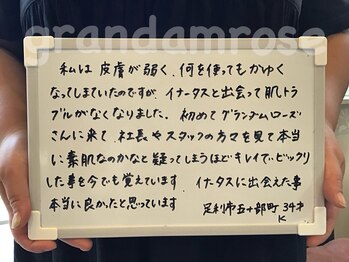 grandamrose
私は皮膚が弱く、何を使ってもかゆく
なってしまていたのですが、イナータスと出会って肌トラ
ブルがなくなりました。初めてグランダムローズ
さんに来て、社長やスタッフの方々を見て本当
に素肌なのかなと疑ってしまうほどキレイでビックリ
した事を今でも覚えています。イナータスに出会えた事
本当に良かったと思っています
足利市五十部町 34才
K